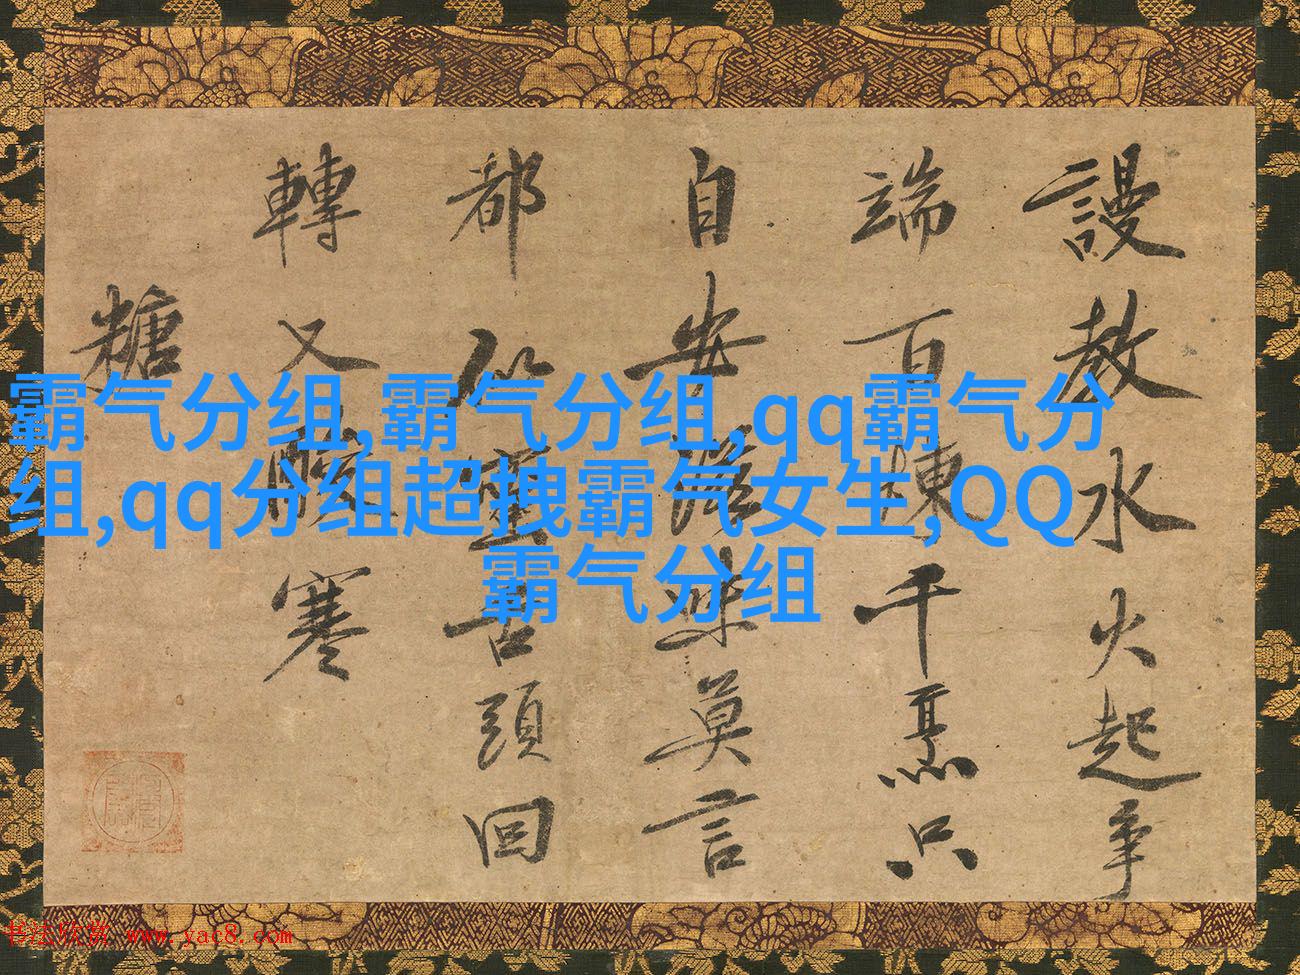 謾教水火起争
端百煉千熏只
自安滋味莫言
都似蜜舌頭回
轉又酸寒
糖
霸气分组,霸气分组,qq霸气分
组,qq分组超拽霸气女生,QQ
霸气分组
书法欣赏 www.yac8.com